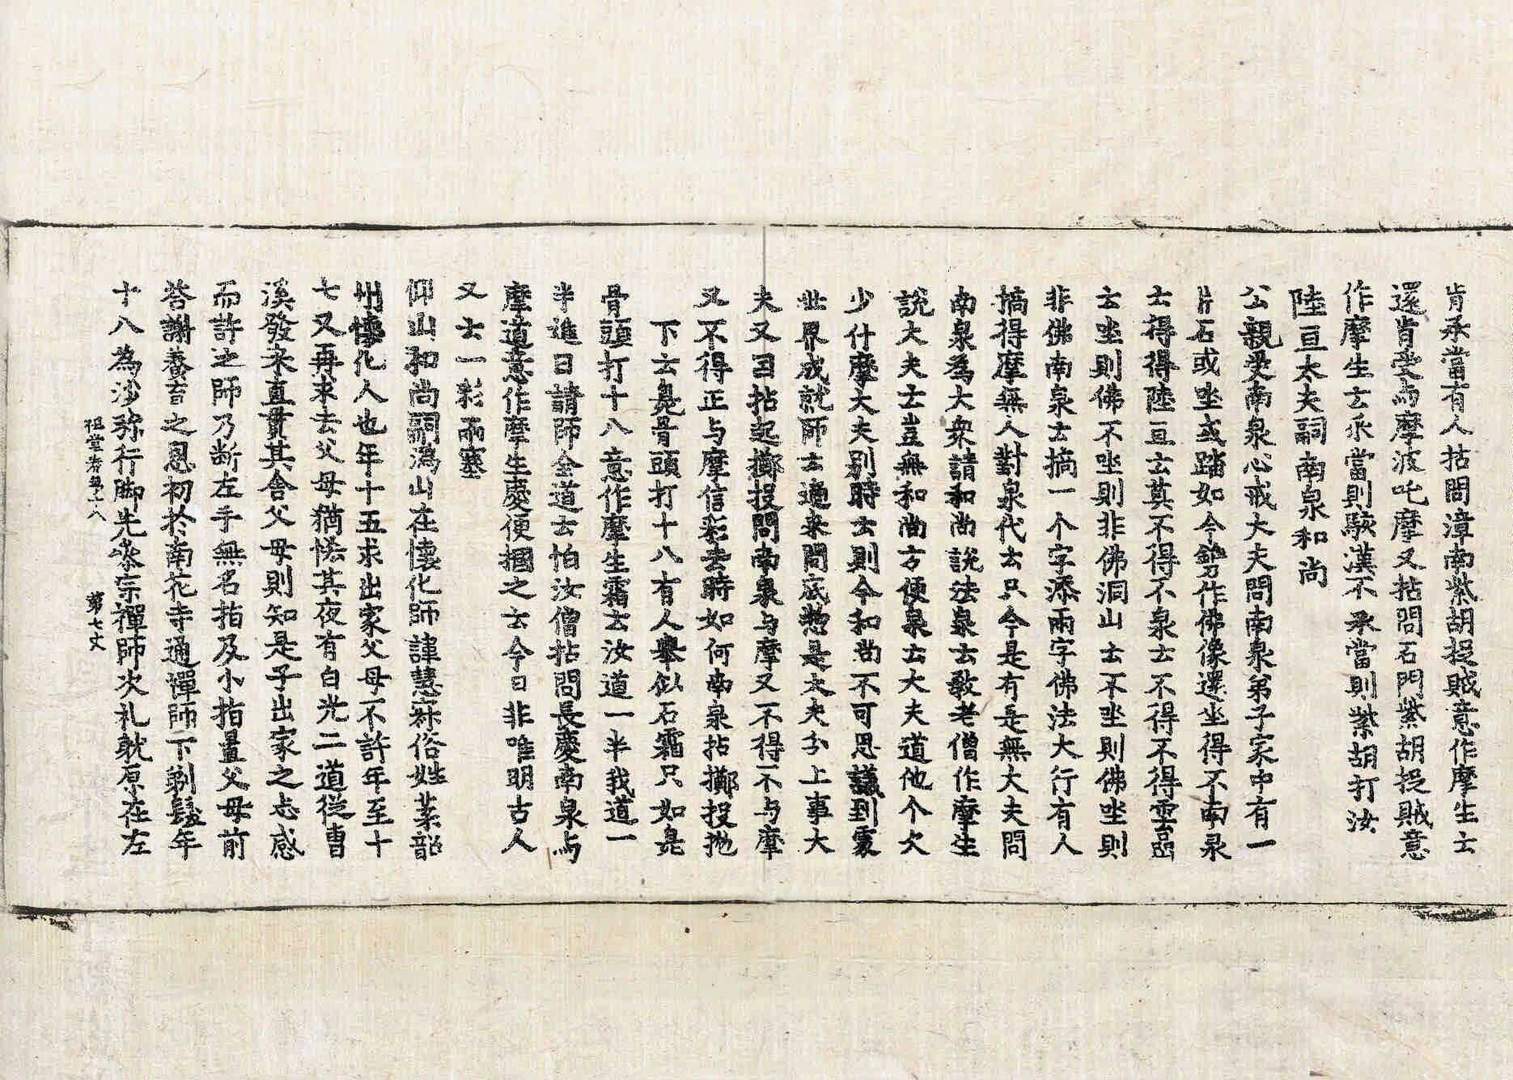 肯承當有人拈問漳南紫胡捉賊意作摩生士
還肯受与摩波吒摩又拈問石門紫胡捉賊意
作摩生士云承當則駭漢不承當則紫胡打汝
陸亘大夫嗣南泉和尚
公親受南泉心戒大夫問南泉弟子家中有一
片石或坐或踏如今鐫作佛像還坐得不南泉
士得得陸亘士莫不得不泉士不得不得雲嵒
士坐則佛不坐則非佛洞山士不坐則佛坐則
非佛南泉士摘一个字添兩字佛法大行有人
搞得摩無人對泉代士只今是有是無大夫問
南泉為大衆請和尚說法泉士教老僧作摩生
說大夫士豈無和尚方便泉士大夫道他个欠
少什摩大夫別時士則今和尚不可思議到處
世界成就師士適来問底惣是大夫分上事大
夫又因拈起擲投問南泉与摩又不得不与摩
又不得正与摩信彩去時如何南泉拈擲投抛
下士臭骨頭打十八有人舉似石霜只如臭
骨頭打十八意作摩生霜士汝道一半我道一
半進曰請師全道士怕汝僧拈問長慶南泉与
摩道意作摩生慶便摑之士今日非唯明古人
又士一彩兩塞
仰山和尚嗣溈山在懷化師諱慧寂俗姓葉韶
州懷化人也年十五求出家父母不許年至十
七又再求去父母猶悋其夜有白光二道從曹
溪發来直貫其舍父母則知是子出家之志感
而許之師乃断左手無名指及小指置父母前
荅謝養育之恩初於南花寺通禪師下剃髮年
十八為沙弥行脚先叅宗禪師次礼耽原在左
祖堂卷第十八 第七丈